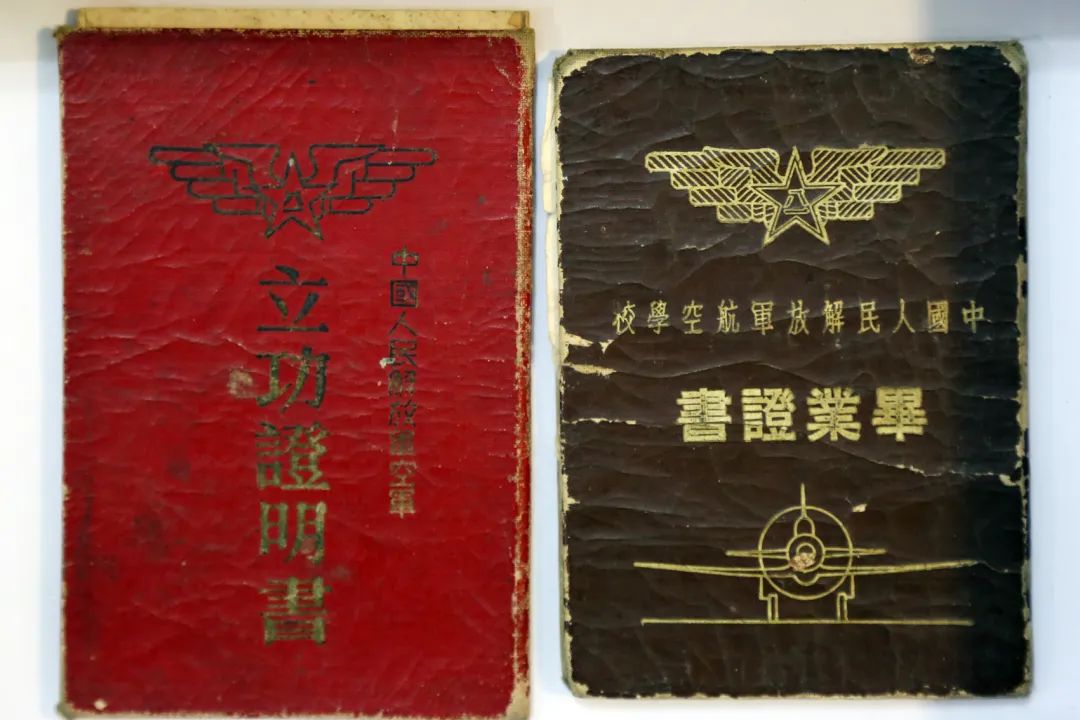 中國人民解放軍空軍
立功證明書
八一
中國人民解放軍航空學校
畢業證書